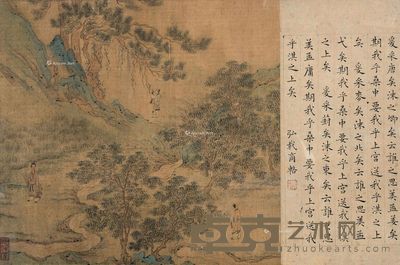 爰采唐矣沬之鄉矣云誰之思美孟姜矣
期我乎桑中要我乎上宮送我乎淇之上
矣 爰采麥矣沬之北矣云誰之思美孟
弋矣期我乎桑中要我乎上宮送我乎淇
之上矣 爰采葑矣沬之東矣云誰之思
美孟庸矣期我乎桑中要我乎上宮送我
乎淇之上矣
弘載商輅
艺术网